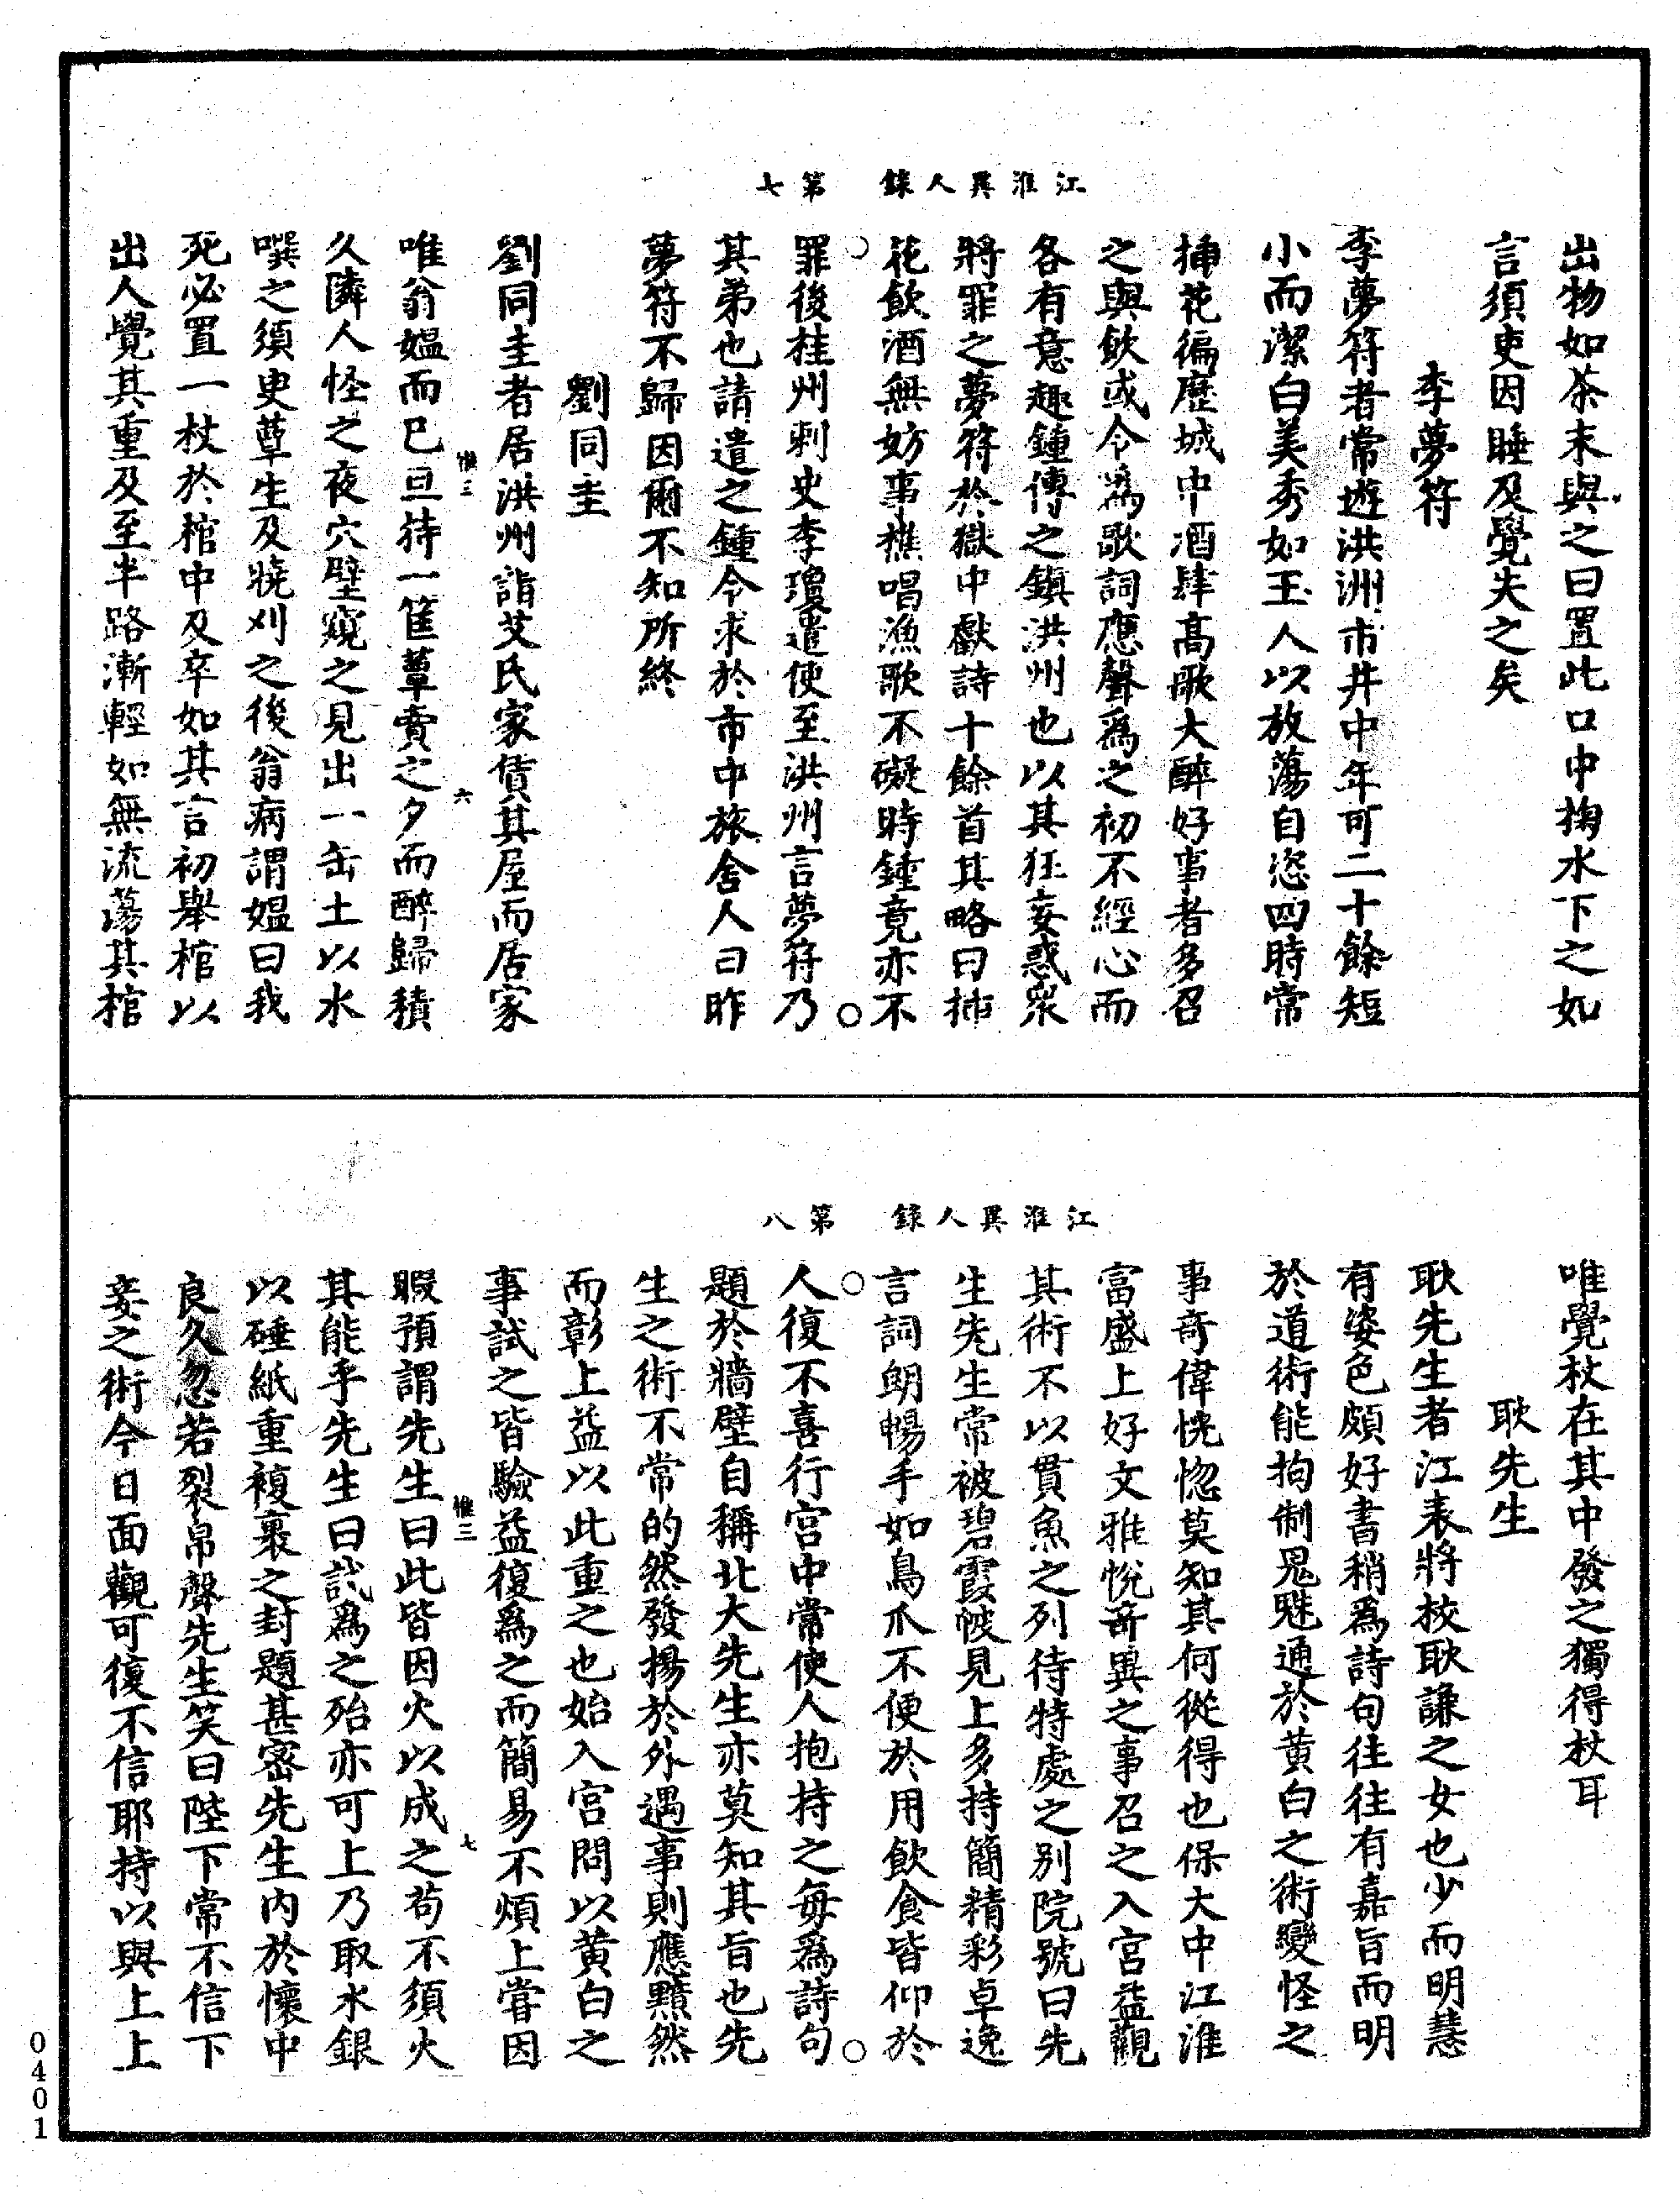 江淮異人錄　第七
出物如茶末與之曰置此口中掬水下之如
言須叓因睡及覺失之矣
李夢符
李夢符者常遊洪洲市井中年可二十餘短
小而潔白美秀如玉人以放蕩自恣四時常
揷花徧歷城中酒肆高歌大醉好事者多召
之與飲或令爲歌詞應聲爲之初不經心而
各有意趣鍾傳之鎮洪州也以其狂妄惑衆
將罪之夢符於獄中獻詩十餘首其略曰揷
花飲酒無妨事樵唱漁歌不礙時鍾竟亦不
罪後桂州刺史李瓊遣使至洪州言夢符乃
其弟也請遣之鍾令求於市中旅舍人曰昨
夢符不歸因爾不知所終
劉同圭
劉同圭者居洪州詣艾氏家賃其屋而居家
惟三　六
唯翁媼而已旦持一筐蕈賣之夕而醉歸積
久隣人怪之夜穴壁窺之見出一缶土以水
噀之須叓蕈生及曉刈之後翁病謂媼曰我
死必置一杖於棺中及卒如其言初舉棺以
出人覺其重及至半路漸輕如無流蕩其棺
江淮異人錄　第八
唯覺杖在其中發之獨得杖耳
耿先生
耿先生者江表將校耿謙之女也少而明慧
有姿色頗好書稍爲詩句往往有嘉旨而明
於道術能拘制鬼魅通於黄白之術變怪之
事奇偉恍惚莫知其何從得也保大中江淮
富盛上好文雅悅奇異之事召之入宫益觀
其術不以貫魚之列待特處之别院號曰先
生先生常被碧霞帔見上多持簡精彩卓逸
言詞朗暢手如鳥爪不便於用飲食皆仰於
人復不喜行宫中常使人抱持之每爲詩句
題於牆壁自稱北大先生亦莫知其旨也先
生之術不常的然發揚於外遇事則應黯然
而彰上益以此重之也始入宫問以黄白之
事試之皆驗益復爲之而簡易不煩上嘗因
惟三　七
暇預謂先生曰此皆因火以成之苟不須火
其能乎先生曰試爲之殆亦可上乃取水銀
以硾紙重複裹之封題甚密先生内於懷中
良久忽若裂帛聲先生笑曰陛下常不信下
妾之術今日面觀可復不信耶持以與上上
0401